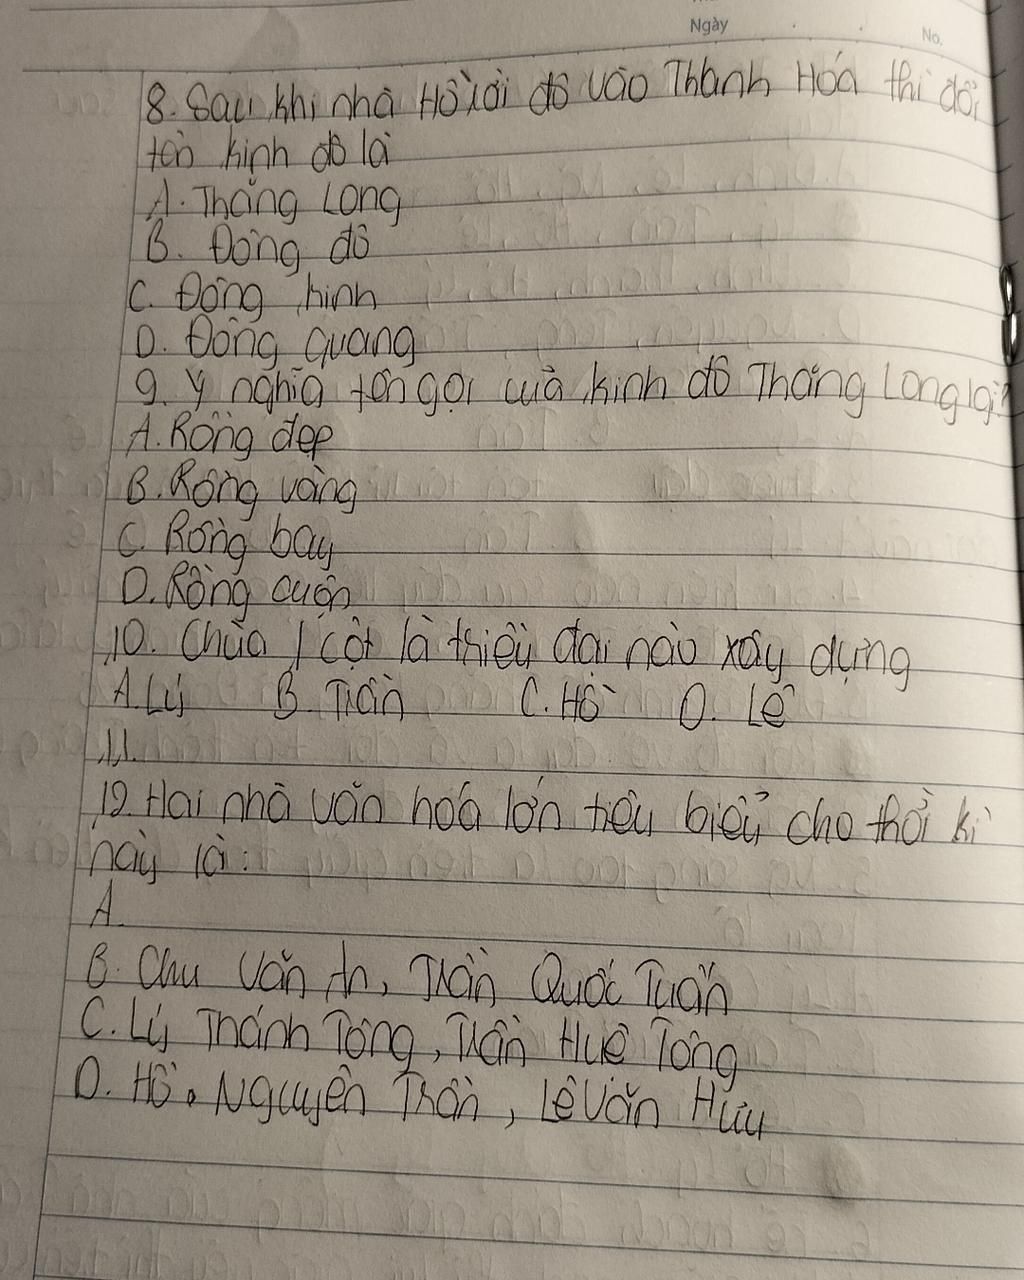 Ngày
No.
8. Sau khi nhà Hồ dời đô vào Thanh Hóa thì đổi
tên kinh đô là
A. Thăng Long
B. Đông đô
C. Đông kinh
D. Đông quang
9. Ý nghĩa tên gọi cuả kinh đô Thăng Long là?
A. Rồng đẹp
B. Rồng vàng
C. Rồng bay
D. Rồng cuộn
10. Chùa 1 cột là triều đại nào xây dựng
A. Lý B. Trần C. Hồ D. Lê
11.
12. Hai nhà văn hoá lớn tiêu biểu cho thời kì
này là:
A.
B. Chu Văn An, Trần Quốc Tuấn
C. Lý Thánh Tông, Trần Huê Tông
D. Hồ, Nguyên Trần, Lê Văn Hưu